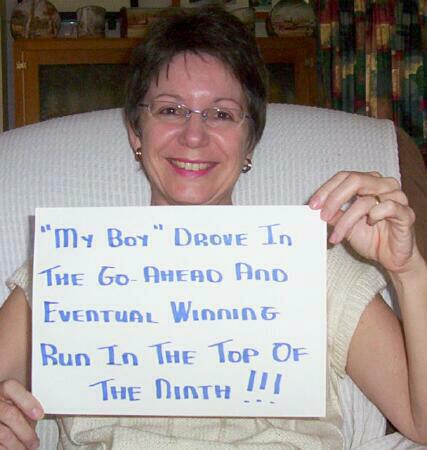 "My Boy" Drove In
The Go-Ahead And
Eventual Winning
Run In The Top Of
The Ninth !!!